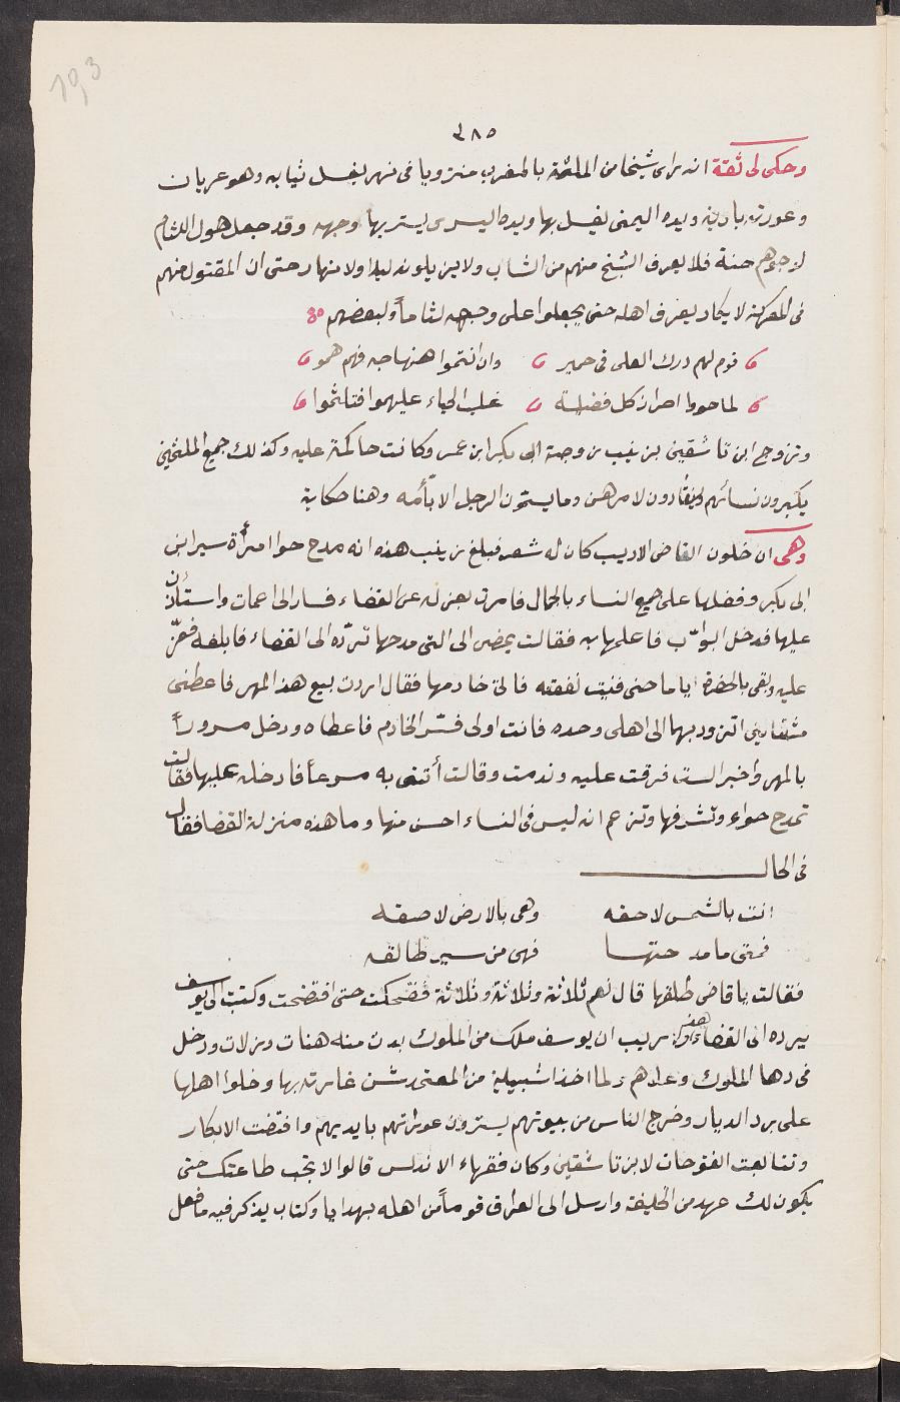 193
٣٨٥
وحكى لى ثقة انه راى شيخا من الملثمة بالمغرب منزويا فى نهر يغسل ثيابه وهو عريان
وعورته بادية ويده اليمنى يغسل بها ويده اليسرى يستر بها وجهه وقد جعل هول اللثام
لوجوههم جنة فلا يعرف الشيخ منهم من الشاب ولا يزيلونه ليلا ولا نهارا حتى ان المقتول منهم
فى المعركة لا يكاد يعرف اهله حتى يجعلوا على وجهه لثاماً ولبعضهم
قوم لهم درك العلى فى حمير وان انتموا صنهاجه فهم همو
لما حووا احراز كل فضيلة غلب الحياء عليهموا فتلثموا
وتزوج ابن تاشقين بزينب زوجة ابى بكر ابن عمر وكانت حاكمة عليه وكذلك جميع الملثمين
يكبرون نسائهم وينقادون لامرهن وما يسمون الرجل الا بأمه وهنا حكاية
وهى ان خلون القاضى الاديب كان له شعر فبلغ زينب هذه انه مدح حوا امرأة سير ابن
ابى بكر وفضلها على جميع النساء بالجمال فامرت بعزله عن القضاء فسار الى اغمات واستأذن
عليها فدخل البواب فاعلمها به فقالت يمضى الى التى مدحها ترده الى القضاء فابلغه فعزّ
عليه وبقى بالحضرة اياما حتى فنيت نفقته فاتى خادمها فقال اردت بيع هذا المهر فاعطنى
مثقالين اتزود بهما الى اهلى وحده فانت اولى فسر الخادم فاعطاه ودخل مسروراً
بالمهر واخبر الست فرقت عليه وندمت وقالت أتنى به مسرعاً فادخله عليها فقالت
تمدح حواء وتشرفها وتزعم انه ليس فى النساء احسن منها وما هذه منزلة القضا فقال
فى الحال
انت بالشمس لاحقه وهى بالارض لاصقه
فمتى ما مدحتها فهى من سير طالقه
فقالت يا قاضى طلقها قال نعم ثلاثة وثلاثة وثلاثة فضحكت حتى افتضحت وكتبت الى يوسف
يرده الى القضاء ريب ان يوسف ملك من الملوك بدت منه هنات وزلات ودخل
فى دها الملوك وغدرهم ولما اخذ اشبيلية من المعتمد شن غارته بها وخلوا اهلها
على برد الديار وخرج الناس من بيوتهم يسترون عوراتهم بايديهم وافتضت الابكار
وتتابعت الفتوحات لابن تاشقين وكان فقهاء الاندلس قالوا لا تجب طاعتك حتى
يكون لك عهد من الخليفة وارسل الى العراق قوماً من اهله بهدايا وكتاب يذكر فيه ما فعل